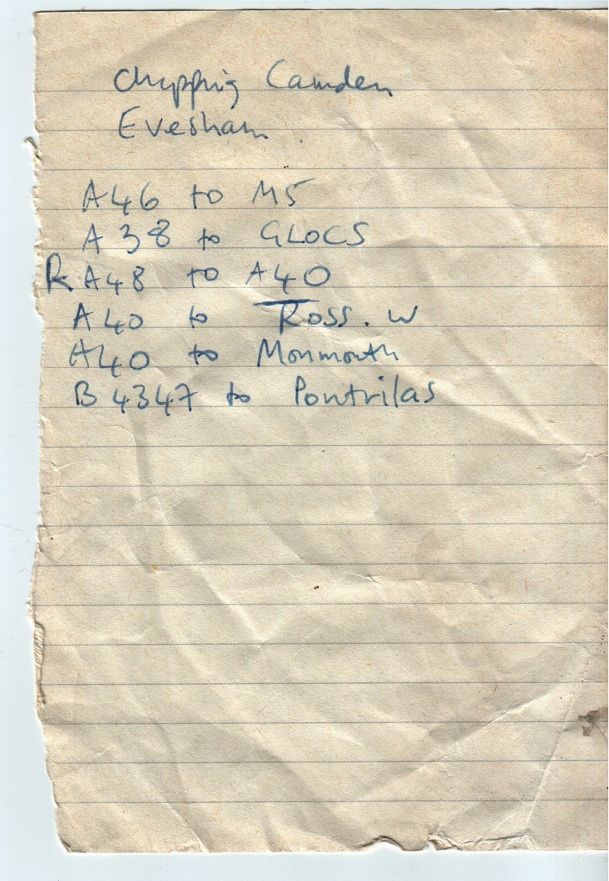 Chipping Camden
Evesham
A46 to M5
A38 to GLOCS
R A48 to A40
A40 to Ross. W
A40 to Monmouth
B4347 to Pontrilas